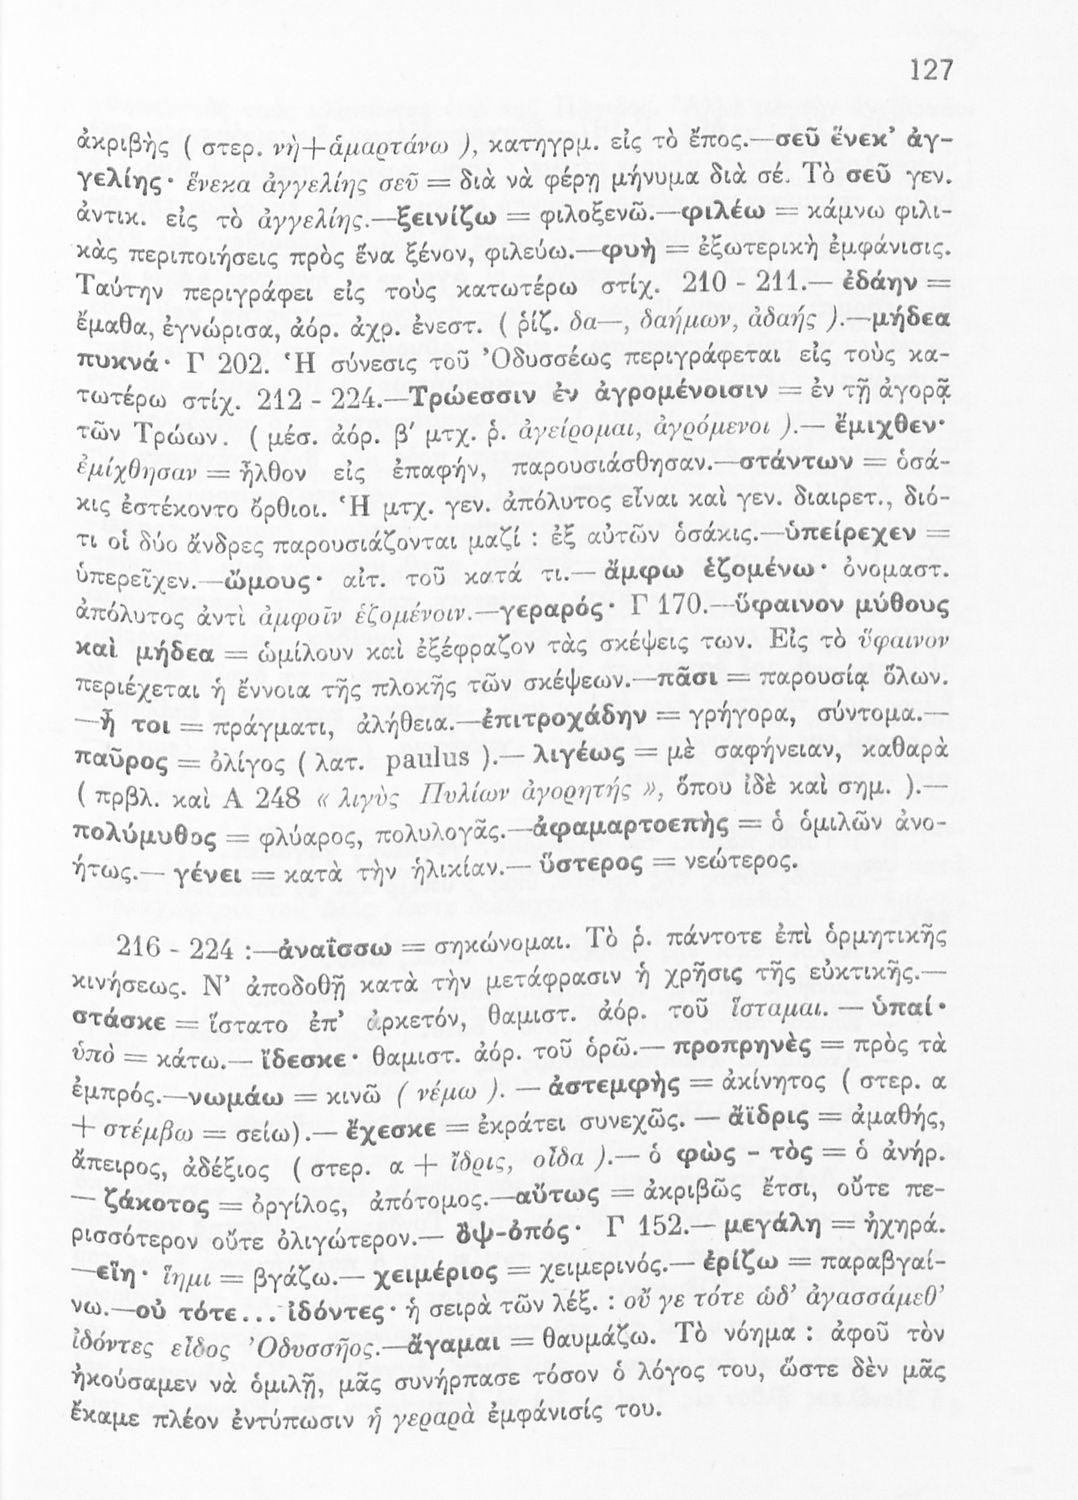 127
ἀκριβὴς ( στερ. νὴ+ἁμαρτάνω ), κατηγρμ. εἰς τὸ ἔπος.—σεῦ ἕνεκ’ ἀγ-
γελίης· ἕνεκα ἀγγελίης σεῦ = διὰ νὰ φέρῃ μήνυμα διὰ σέ. Τὸ σεῦ γεν.
ἀντικ. εἰς τὸ ἀγγελίης.—ξεινίζω = φιλοξενῶ.—φιλέω = κάμνω φιλι-
κὰς περιποιήσεις πρὸς ἕνα ξένον, φιλεύω.—φυὴ = ἐξωτερικὴ ἐμφάνισις.
Ταύτην περιγράφει εἰς τοὺς κατωτέρω στίχ. 210 - 211.— ἐδάην =
ἔμαθα, ἐγνώρισα, ἀόρ. ἀχρ. ἐνεστ. ( ῥίζ. δα—, δαήμων, ἀδαής ).—μήδεα
πυκνά· Γ 202. Ἡ σύνεσις τοῦ Ὀδυσσέως περιγράφεται εἰς τοὺς κα-
τωτέρω στίχ. 212 - 224.—Τρώεσσιν ἐν ἀγρομένοισιν = ἐν τῇ ἀγορᾷ
τῶν Τρώων. ( μέσ. ἀόρ. β′ μτχ. ῥ. ἀγείρομαι, ἀγρόμενοι ).— ἔμιχθεν·
ἐμίχθησαν = ἦλθον εἰς ἐπαφήν, παρουσιάσθησαν.—στάντων = ὁσά-
κις ἐστέκοντο ὄρθιοι. Ἡ μτχ. γεν. ἀπόλυτος εἶναι καὶ γεν. διαιρετ., διό-
τι οἱ δύο ἄνδρες παρουσιάζονται μαζί : ἐξ αὐτῶν ὁσάκις.—ὑπείρεχεν =
ὑπερεῖχεν.—ὤμους· αἰτ. τοῦ κατά τι.— ἄμφω ἑζομένω· ὀνομαστ.
ἀπόλυτος ἀντὶ ἀμφοῖν ἑζομένοιν.—γεραρός· Γ 170.—ὕφαινον μύθους
καὶ μήδεα = ὡμίλουν καὶ ἐξέφραζον τὰς σκέψεις των. Εἰς τὸ ὕφαινον
περιέχεται ἡ ἔννοια τῆς πλοκῆς τῶν σκέψεων.—πᾶσι = παρουσίᾳ ὅλων.
—ἦ τοι = πράγματι, ἀλήθεια.—ἐπιτροχάδην = γρήγορα, σύντομα.—
παῦρος = ὀλίγος ( λατ. paulus ).— λιγέως = μὲ σαφήνειαν, καθαρὰ
( πρβλ. καὶ Α 248 « λιγὺς Πυλίων ἀγορητής », ὅπου ἰδὲ καὶ σημ. ).—
πολύμυθος = φλύαρος, πολυλογᾶς.—ἀφαμαρτοεπὴς = ὁ ὁμιλῶν ἀνο-
ήτως.— γένει = κατὰ τὴν ἡλικίαν.— ὕστερος = νεώτερος.
216 - 224 :—ἀναΐσσω = σηκώνομαι. Τὸ ῥ. πάντοτε ἐπὶ ὁρμητικῆς
κινήσεως. Ν’ ἀποδοθῇ κατὰ τὴν μετάφρασιν ἡ χρῆσις τῆς εὐκτικῆς.—
στάσκε = ἵστατο ἐπ’ ἀρκετόν, θαμιστ. ἀόρ. τοῦ ἵσταμαι. — ὑπαί·
ὑπὸ = κάτω.— ἴδεσκε· θαμιστ. ἀόρ. τοῦ ὁρῶ.— προπρηνὲς = πρὸς τὰ
ἐμπρός.—νωμάω = κινῶ ( νέμω ). — ἀστεμφὴς = ἀκίνητος ( στερ. α
+ στέμβω = σείω).— ἔχεσκε = ἐκράτει συνεχῶς. — ἄϊδρις = ἀμαθής,
ἄπειρος, ἀδέξιος ( στερ. α + ἴδρις, οἶδα ).— ὁ φὼς - τὸς = ὁ ἀνήρ.
— ζάκοτος = ὀργίλος, ἀπότομος.—αὔτως = ἀκριβῶς ἔτσι, οὔτε πε-
ρισσότερον οὔτε ὀλιγώτερον.— ὂψ-ὀπός· Γ 152.— μεγάλη = ἠχηρά.
—εἵη· ἵημι = βγάζω.— χειμέριος = χειμερινός.— ἐρίζω = παραβγαί-
νω.—οὐ τότε... ἰδόντες· ἡ σειρὰ τῶν λέξ. : οὔ γε τότε ὧδ’ ἀγασσάμεθ’
ἰδόντες εἶδος Ὀδυσσῆος.—ἄγαμαι = θαυμάζω. Τὸ νόημα : ἀφοῦ τὸν
ἠκούσαμεν νὰ ὁμιλῇ, μᾶς συνήρπασε τόσον ὁ λόγος του, ὥστε δὲν μᾶς
ἔκαμε πλέον ἐντύπωσιν ἡ γεραρὰ ἐμφάνισίς του.